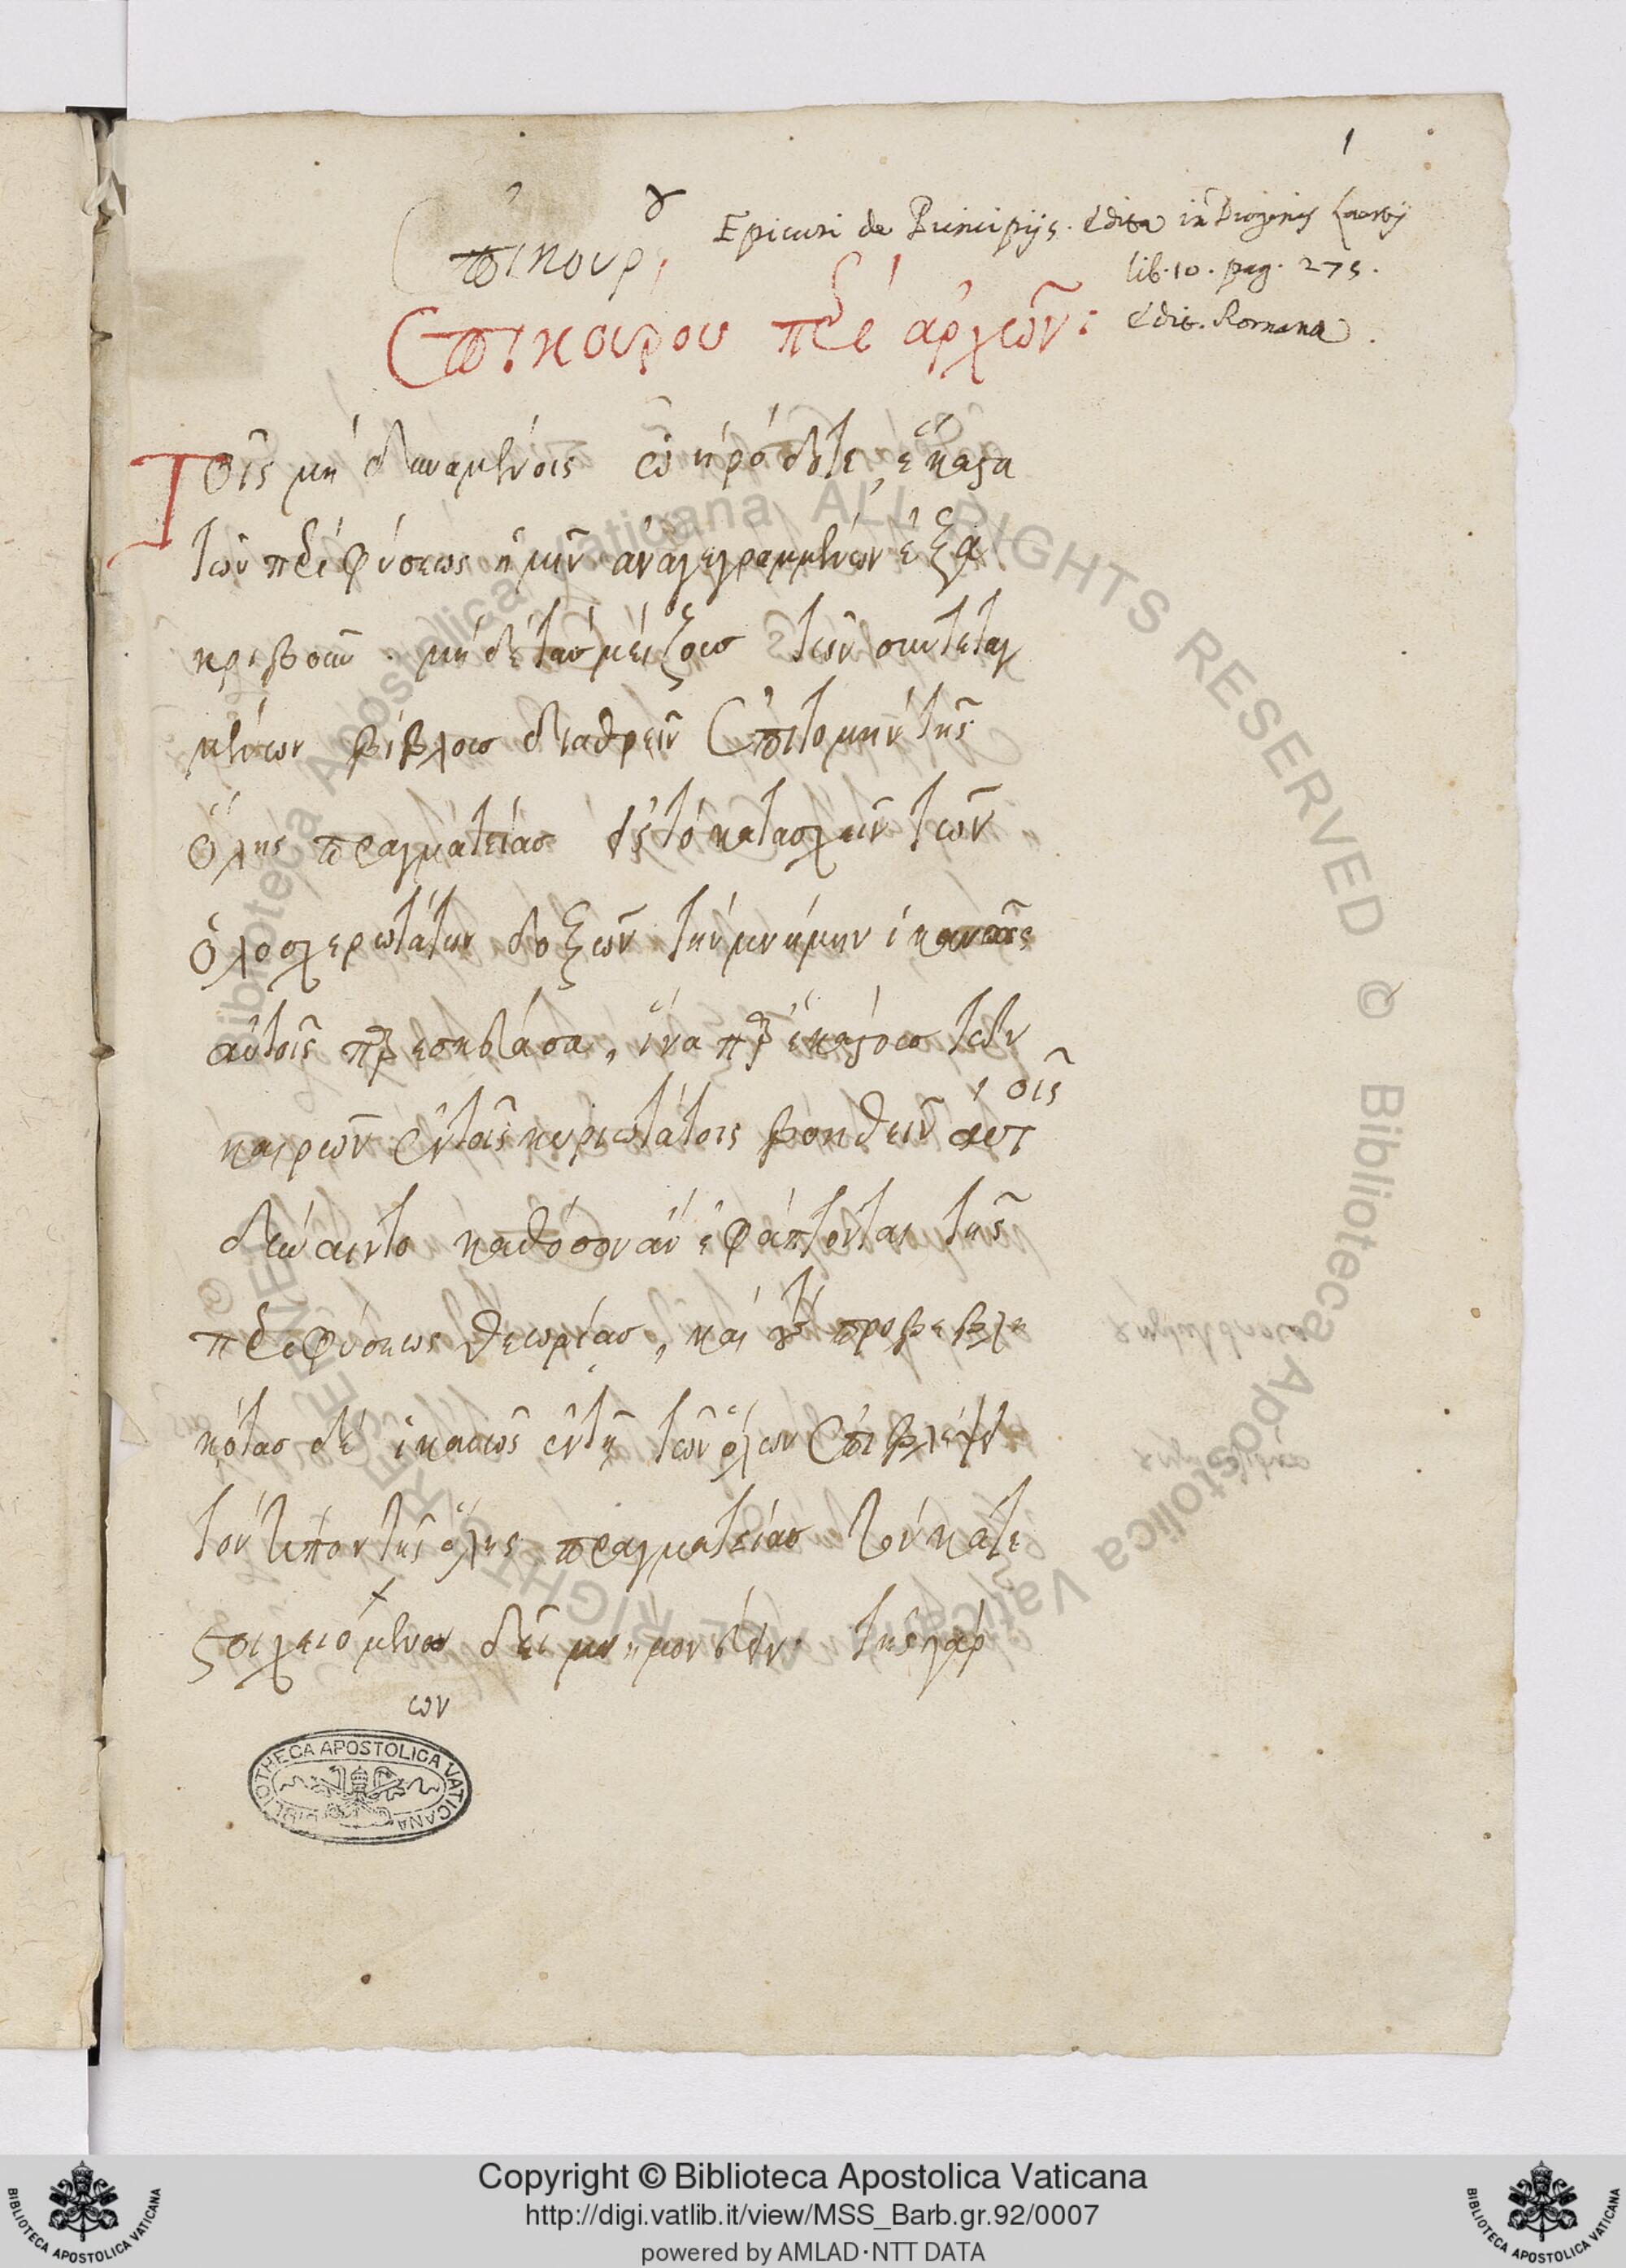 1
Ἐπικούρου
Epicuri de Principijs. edita in Diogenis Laertij
lib. 10. pag. 275.
edit. Romana.
Ἐπικούρου περὶ ἀρχῶν:
Τοῖς μὴ δυναμένοις ὦ ἡρόδοτε, ἕκαστα
τῶν περὶ φύσεως ἡμῖν ἀναγεγραμμένων ἐξα
κριβοῦν. μηδὲ τὰσ μείζουσ τῶν συντεταγ
μένων βίβλουσ διαθρεῖν ἐπιτομὴν τῆς
ὅλης πραγματείασ εἰς τὸ κατασχεῖν τῶν
ὁλοσχερωτάτων δοξῶν τὴν μνήμην ἱκανῶς
αὐτοῖς παρεσκεύασα, ἵνα παρ' ἑκάστουσ τῶν
καιρῶν ἐν τοῖς κυριωτάτοις βοηθεῖν αὑτοῖς
δύναιντο καθόσον ἂν ἐφάπτονται τῆς
περὶ φύσεως θεωρίασ, καὶ τοὺς προβεβλη
κότασ δὲ ἱκανῶς ἐν τῇ τῶν ὅλων ἐπιβλέψει
τὸν τύπον τῆς ὅλης πραγματείασ τὸν κατε
στοιχειομένον δεῖ μνημονεύειν. τῆς γὰρ
ων
BIBLIOTHECA APOSTOLICA VATICANA
Biblioteca Apostolica Vaticana ALL RIGHTS RESERVED ©
Copyright © Biblioteca Apostolica Vaticana
http://digi.vatlib.it/view/MSS_Barb.gr.92/0007
powered by AMLAD·NTT DATA
BIBLIOTECA APOSTOLICA VATICANA
BIBLIOTECA APOSTOLICA VATICANA